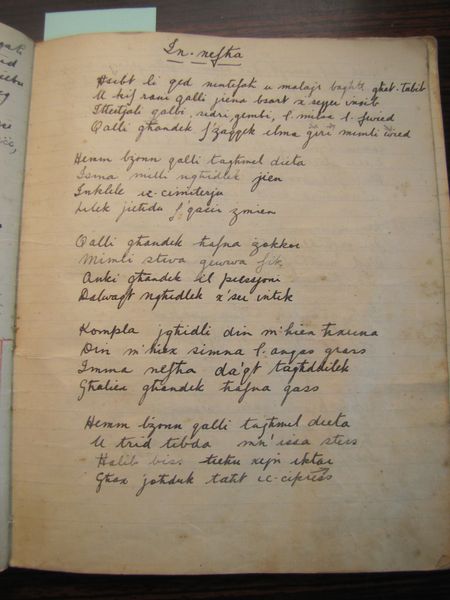 In-nefħa
Ħsibt li qed nintefaħ u malajr bgħatt għat-tabib
U kif rani qalli jiena bsart x seqer insib
Ittestjali qalbi, sidri, ġembi, l milsa l fwied
Qalli għandek f'żaqqek ilma ġeri mimli
Hemm bżonn qalli tagħmel dieta
Isma milli ngħidlek jien
Inklele iċ-ċimiterju
Lilek jieħdu f'qasir żmien
Qalli għandek ħafna zokkor
Mimli stiva ġewwa fik
Anki għandek il pressjoni
Dalwaqt ngħidlek x'ser intik
Kompla jgħidli din m'hiex ħxuna
Din m'hiex simna l. anqas grass
Imma nefħa daqt tagħddilek
Għaliex għandek ħafna gass
Hemm bżonn qalli tagħmel dieta
U trid tibda mn' issa stess
Ħalib biss tieħu xejn iktar
Għax joħduk taħt iċ-ċipress